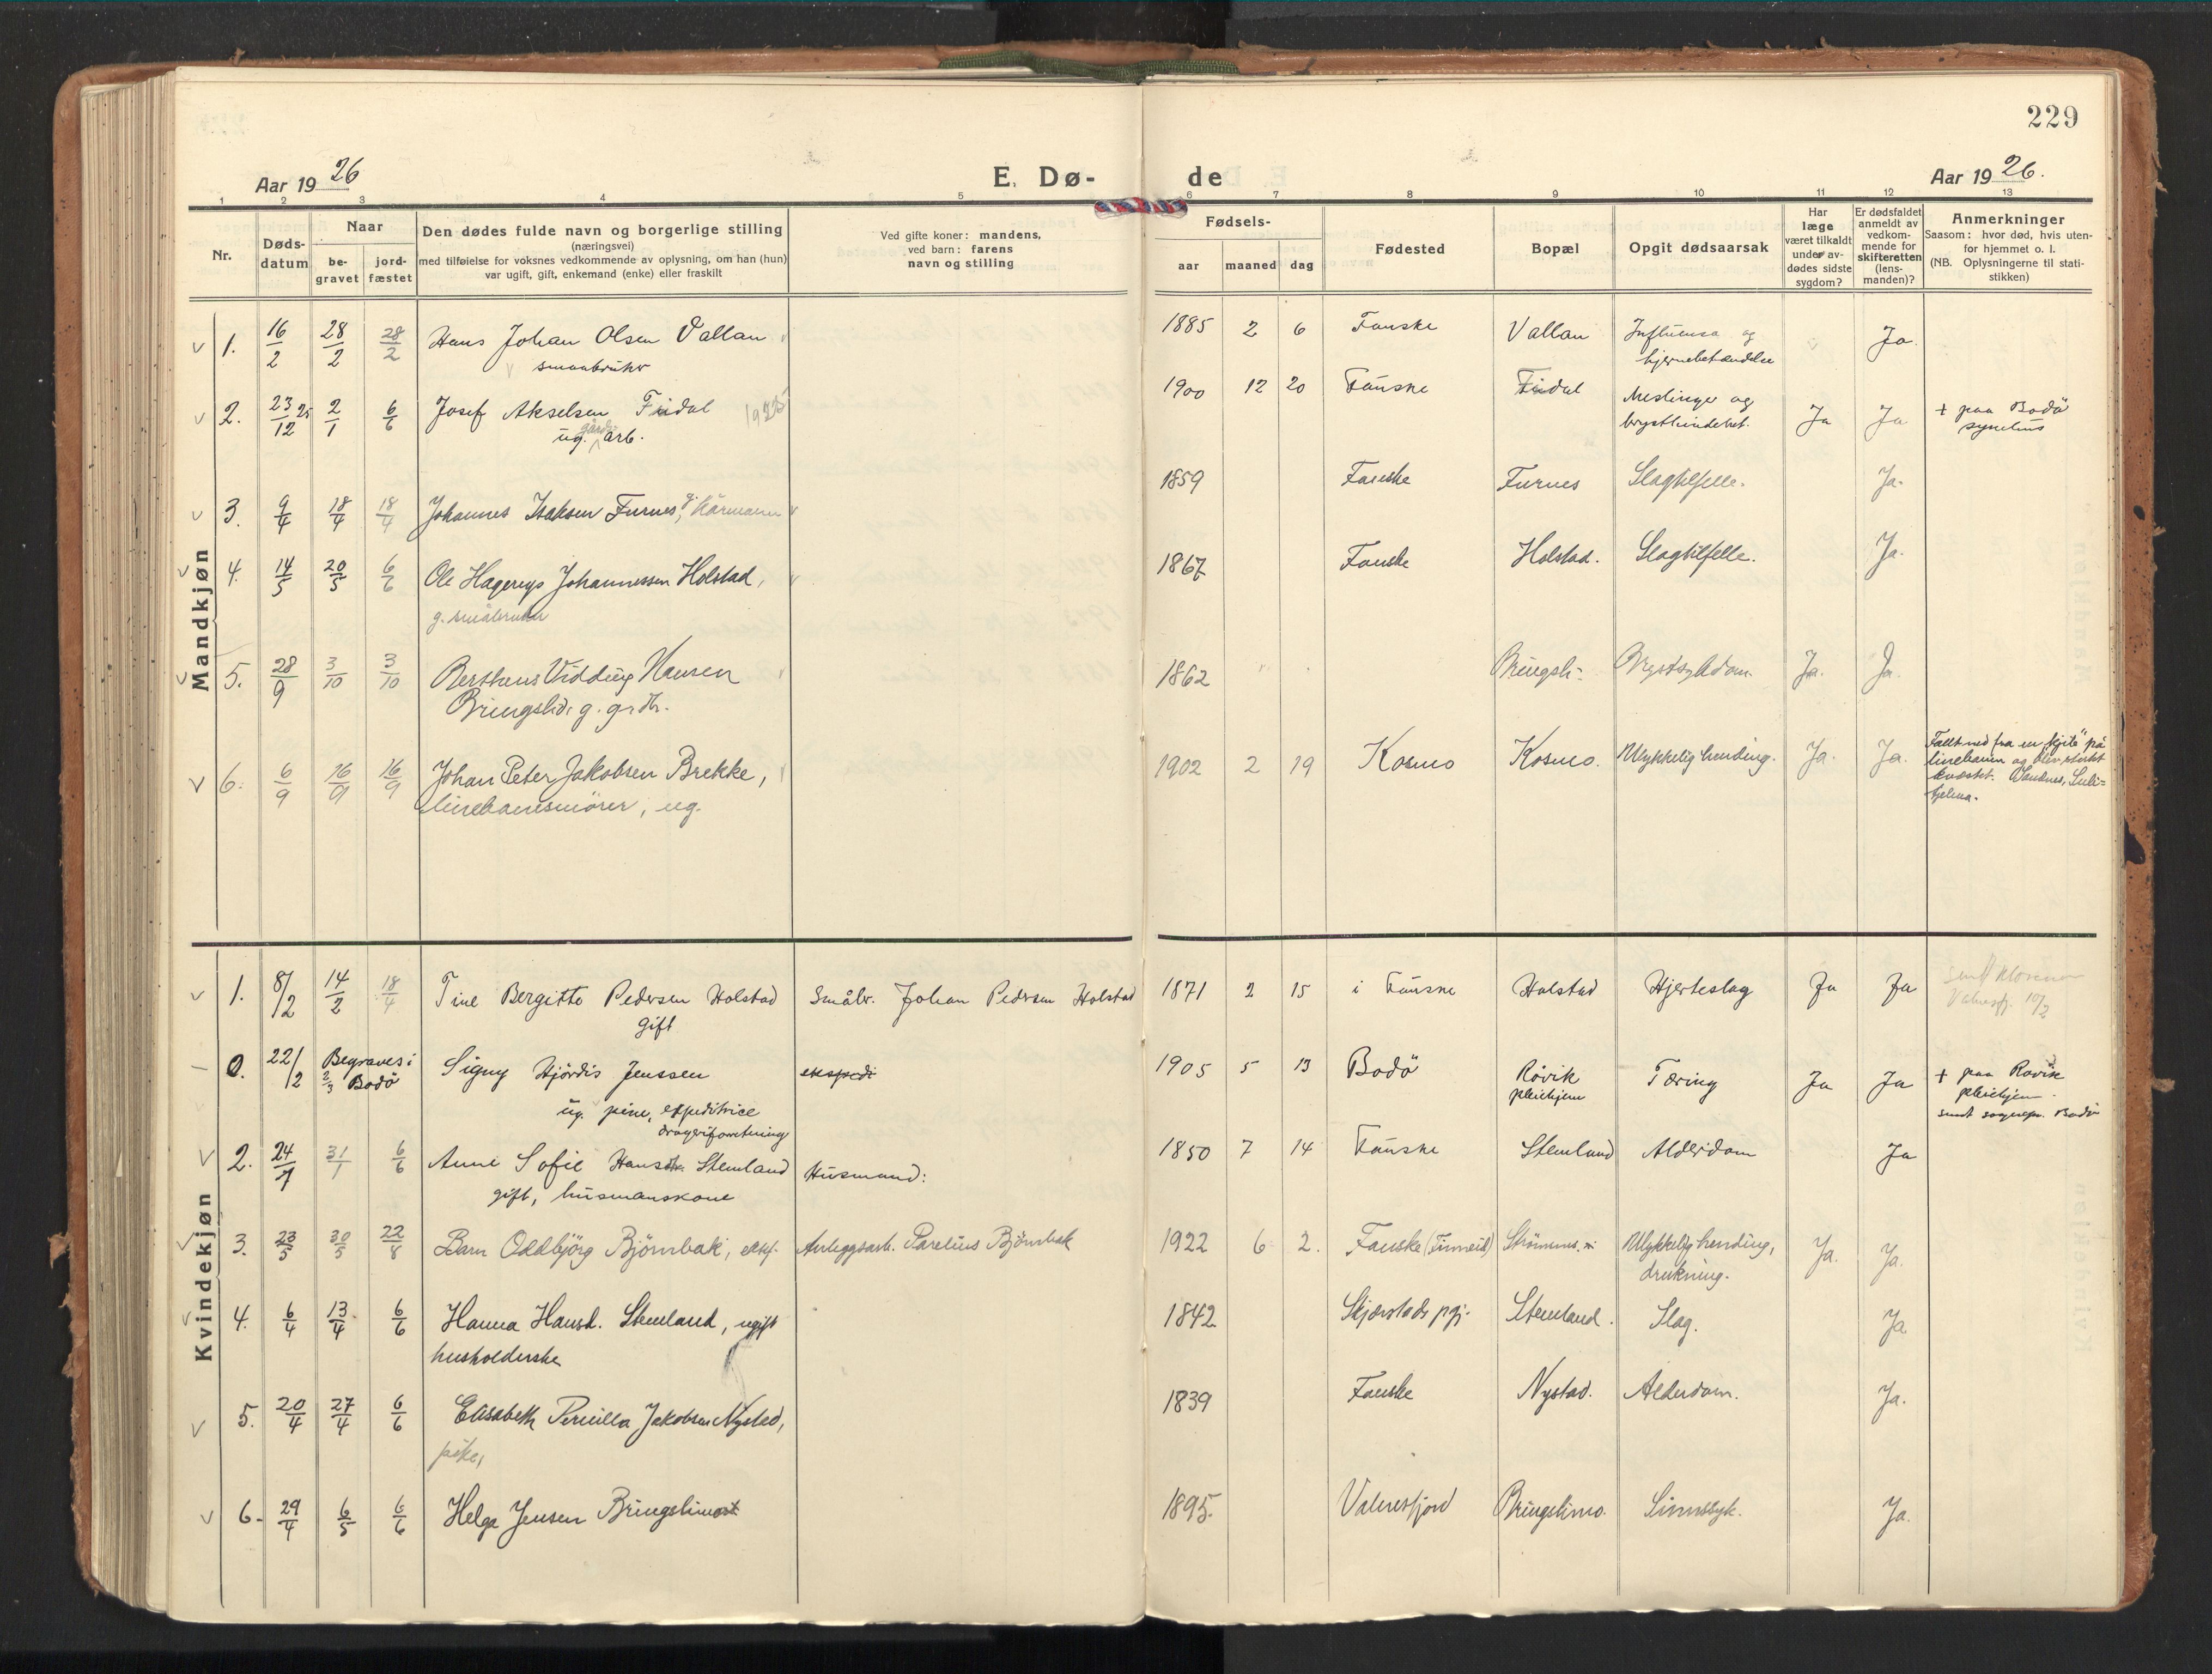 229
Aar 1926
E. Dø-
de
Aar 1926.
1 2 3 4 5 6 7 8 9 10 11 12 13
Nr.
Døds-
datum
Naar
be-
gravet
jord-
fæstet
Den dødes fulde navn og borgerlige stilling
(næringsvei)
med tilføielse for voksnes vedkommende av oplysning, om han (hun)
var ugift, gift, enkemand (enke) eller fraskilt
Ved gifte koner: mandens,
ved barn: farens
navn og stilling
Fødsels-
aar maaned dag
Fødested
Bopæl
Opgit dødsaarsak
Har
læge
været tilkaldt
under av-
dødes sidste
sygdom?
Er dødsfaldet
anmeldt av
vedkom-
mende for
skifteretten
(lens-
manden)?
Anmerkninger
Saasom: hvor død, hvis uten-
for hjemmet o. l.
(NB. Oplysningerne til stati-
stikken)
Mandkjøn
v 1. 16/2 28/2 28/2 Hans Johan Olsen Vallan 1885 2 6 Fauske Vallan Influensa og Ja
smaabruker hjernebetændelse
v 2. 23/12 25 2/1 6/6 Josef Akselsen Fridal 1925 1900 12 20 Fauske Fridal Meslinger og Ja Ja + paa Bodö
ug. gårds arb. brystbindebet. sykehus
v 3. 9/4 18/4 18/4 Johannes Isaksen Furnes, g. Kårmann 1859 Fauske Furnes Slagtilfelle. Ja.
v 4. 14/5 20/5 6/6 Ole Hagerup Johannessen Holstad, 1867 Fauske Holstad. Slagtilfelle. Ja.
g. småbruker
v 5. 28/9 3/10 3/10 Hansen 1862 Bringsli Brystsykdom. Ja. Ja.
Bringsli g. grdbr.
v 6. 6/9 16/9 16/9 Johan Peter Jakobsen Brekke, 1902 2 19 Kosmo Kosmo. Ulykkelig hending. Ja. Ja. Falt ned fra en på
linebanesmörer, ug. linebanen og blev
kvæstet. Sandnes, Suli=
tjelma.
Kvindekjøn
v 1. 8/2 14/2 18/4 Tine Bergitte Pedersen Holstad Småbr. Johan Pedersen Holstad 1871 2 15 i Fauske Holstad Hjerteslag Ja Ja
gift Valnesfj. 10/2
0. 22/2 Begraves i 2/3 Bodö Signy Hjördis Jenssen ekspedi 1905 5 13 Bodö Røvik Tæring Ja Ja + paa Røvik
ug. pike, expeditrice pleiehjem pleiehjem
drageriforretning sendt sognepr. Bodö
v 2. 24/7 31/1 6/6 Anne Sofie Hansdtr. Stemland Husmand: 1850 7 14 Fauske Stemland Alderdom Ja
gift, husmanskone
v 3. 23/5 30/5 22/8 Barn Oddbjörg Björnbak, ekt. Anleggsarb. Parelius Björnbak 1922 6 2. Fauske (Finneid) Strömsnes. Ulykkelig hending, Ja. Ja.
drukning.
v 4. 6/4 13/4 6/6 Hanna Hansd. Stemland, ugift 1842 Skjerstads pgj. Stemland. Slag. Ja
husholderske
v 5. 20/4 27/4 6/6 Elisabeth Pernilla Jakobsen Nystad, 1839 Fauske Nystad. Alderdom. Ja.
pike,
v 6. 29/4 6/5 6/6 Helga Jensen Bringslimo 1895. Valnesfjord Bringslimo. Sinnssyk. Ja.